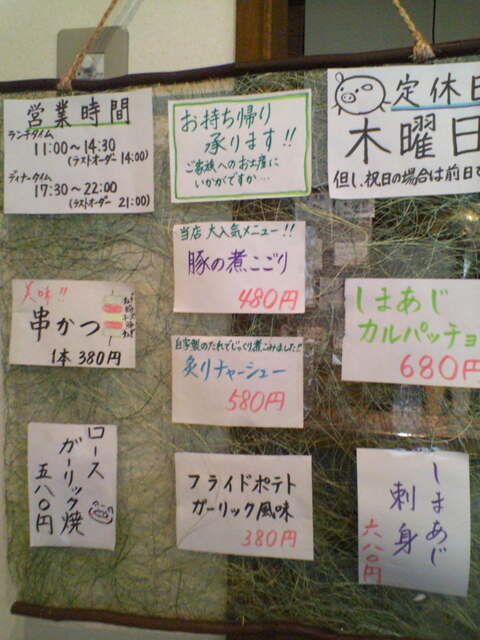 営業時間
ランチタイム
11:00〜14:30
(ラストオーダー 14:00)
ディナータイム
17:30〜22:00
(ラストオーダー 21:00)
お持ち帰り
承ります!!
ご家族へのお土産に
いかがですか…
定休日
木曜日
但し、祝日の場合は前日
当店 大人気メニュー!!
豚の煮こごり
480円
美味!!
串かつ
1本 380円
自家製のたれでじっくり煮こみました!!
炙りチャーシュー
580円
しまあじ
カルパッチョ
680円
ロース
ガーリック焼
五八〇円
フライドポテト
ガーリック風味
380円
しまあじ
刺身
六八〇円